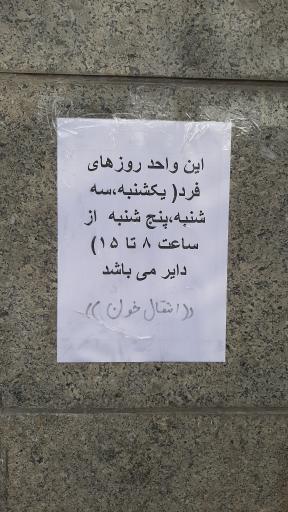 این واحد روزهای
فرد( یکشنبه،سه
شنبه،پنج شنبه از
ساعت ۸ تا ۱۵)
دایر می باشد
((انتقال خون))